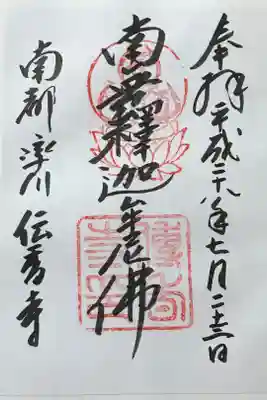 奉拝 平成二十八年七月二十三日
南無釋迦牟尼佛
南都 率川 伝香寺
傳香寺